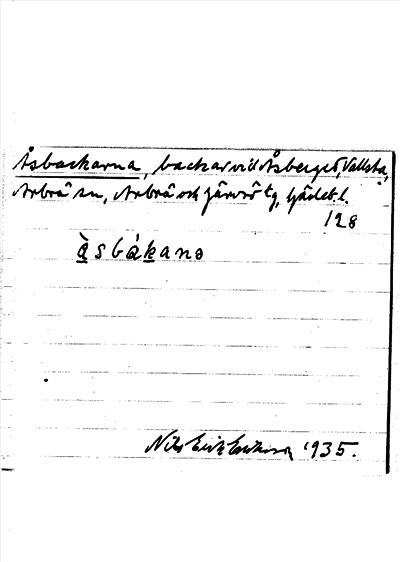 Åsbackarna, backar vid Åsberget, Vallsta,
Arbrå sn, Arbrå och Järvsö tg, Hälsl.
128
åsbåkanə
Nils Erik Eriksson 1935.